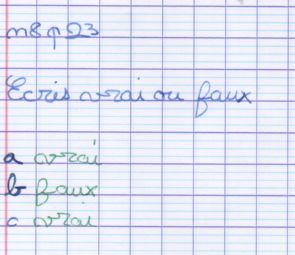 n8p23
Ecris vrai ou faux
a vrai
b faux
c vrai